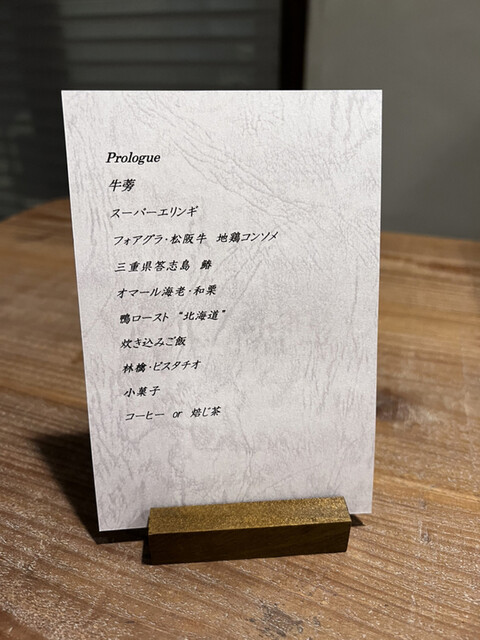 Prologue
牛蒡
スーパーエリンギ
フォアグラ・松阪牛 地鶏コンソメ
三重県答志島 鰆
オマール海老・和栗
鴨ロースト “北海道”
炊き込みご飯
林檎・ピスタチオ
小菓子
コーヒー or 焙じ茶